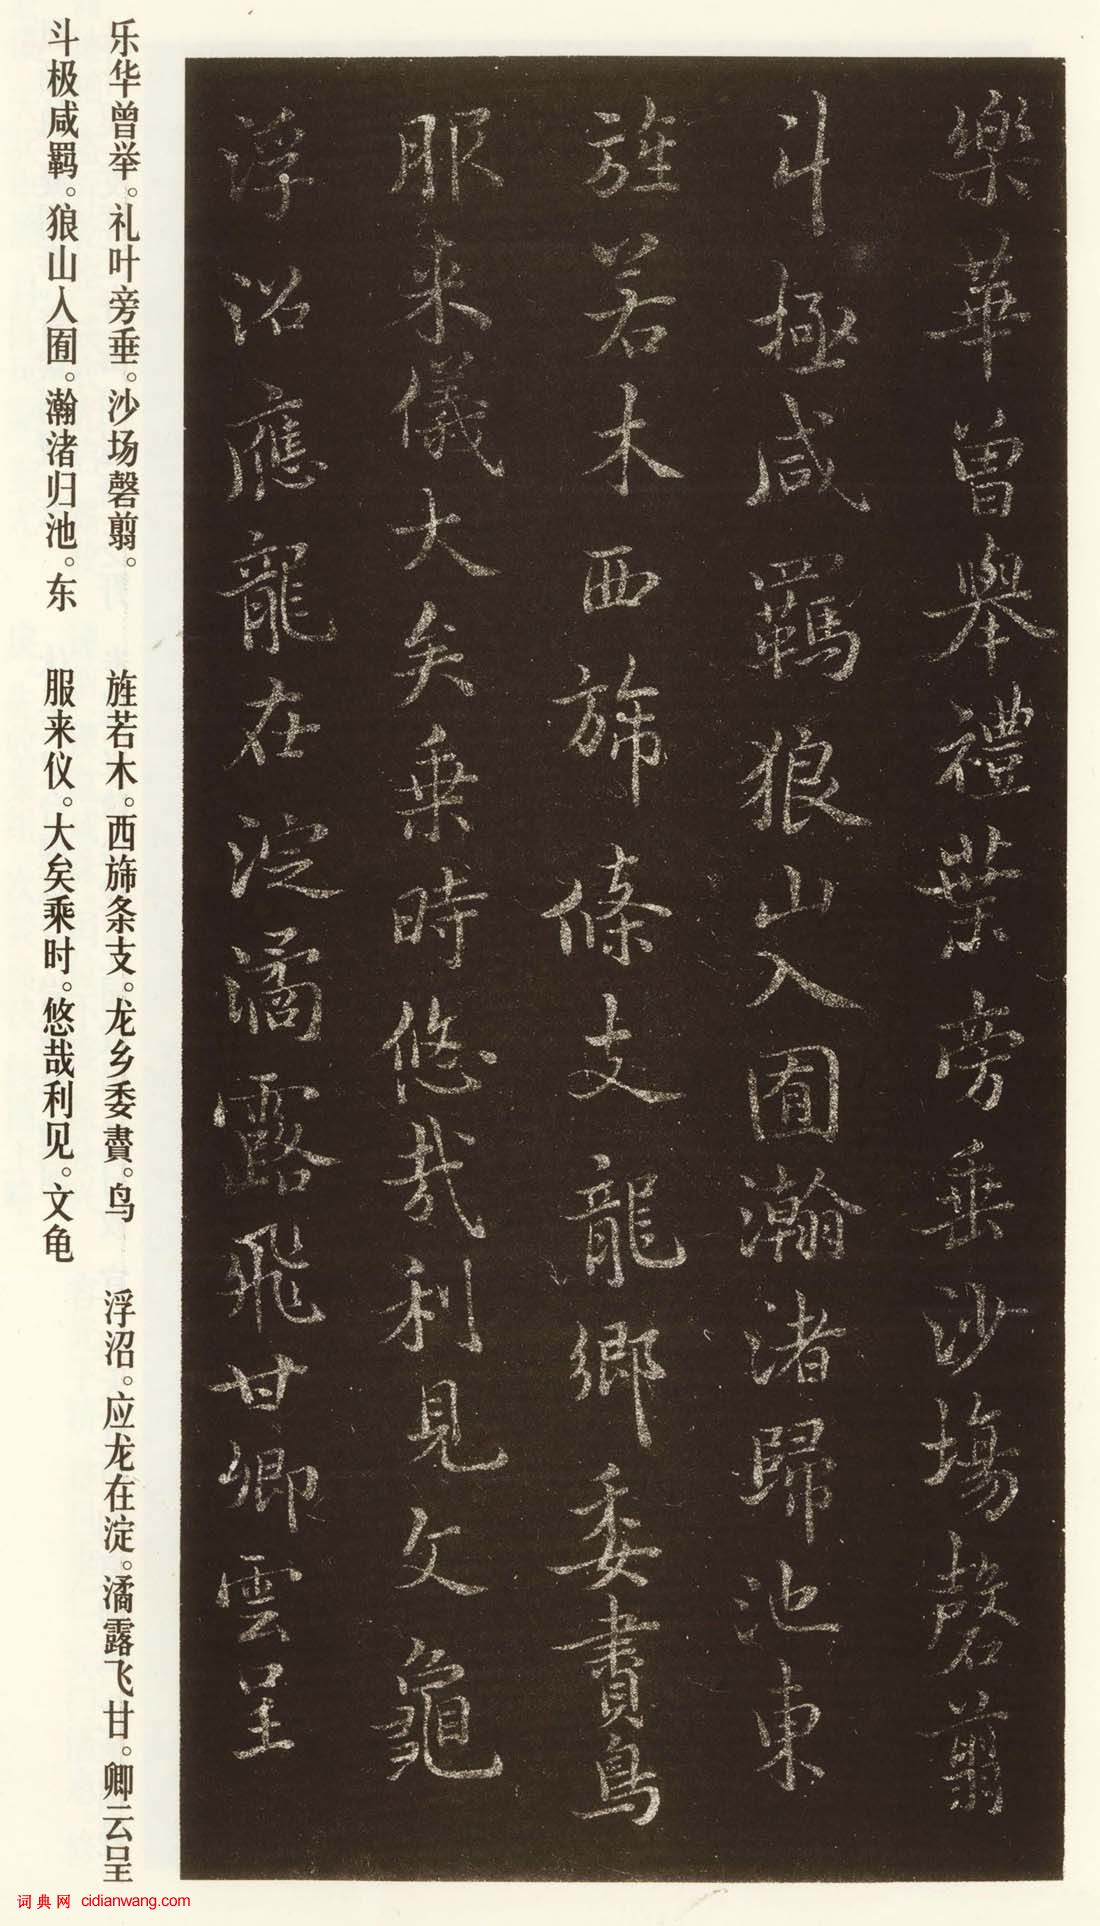 樂華曾舉禮葉旁垂沙場磬翦
斗極咸羈狼山入囿瀚渚歸池東
旌若木西旆條支龍鄉委賮鳥
服来儀大矣乗時悠哉利見文龜
浮沼應龍在淀潏露飛甘卿雲呈
乐华曾举。礼叶旁垂。沙场磬翦。
斗极咸羁。狼山入囿。瀚渚归池。东
旌若木。西旆条支。龙乡委賮。鸟
服来仪。大矣乘时。悠哉利见。文龟
浮沼。应龙在淀。潏露飞甘。卿云呈
词典网 cidianwang.com